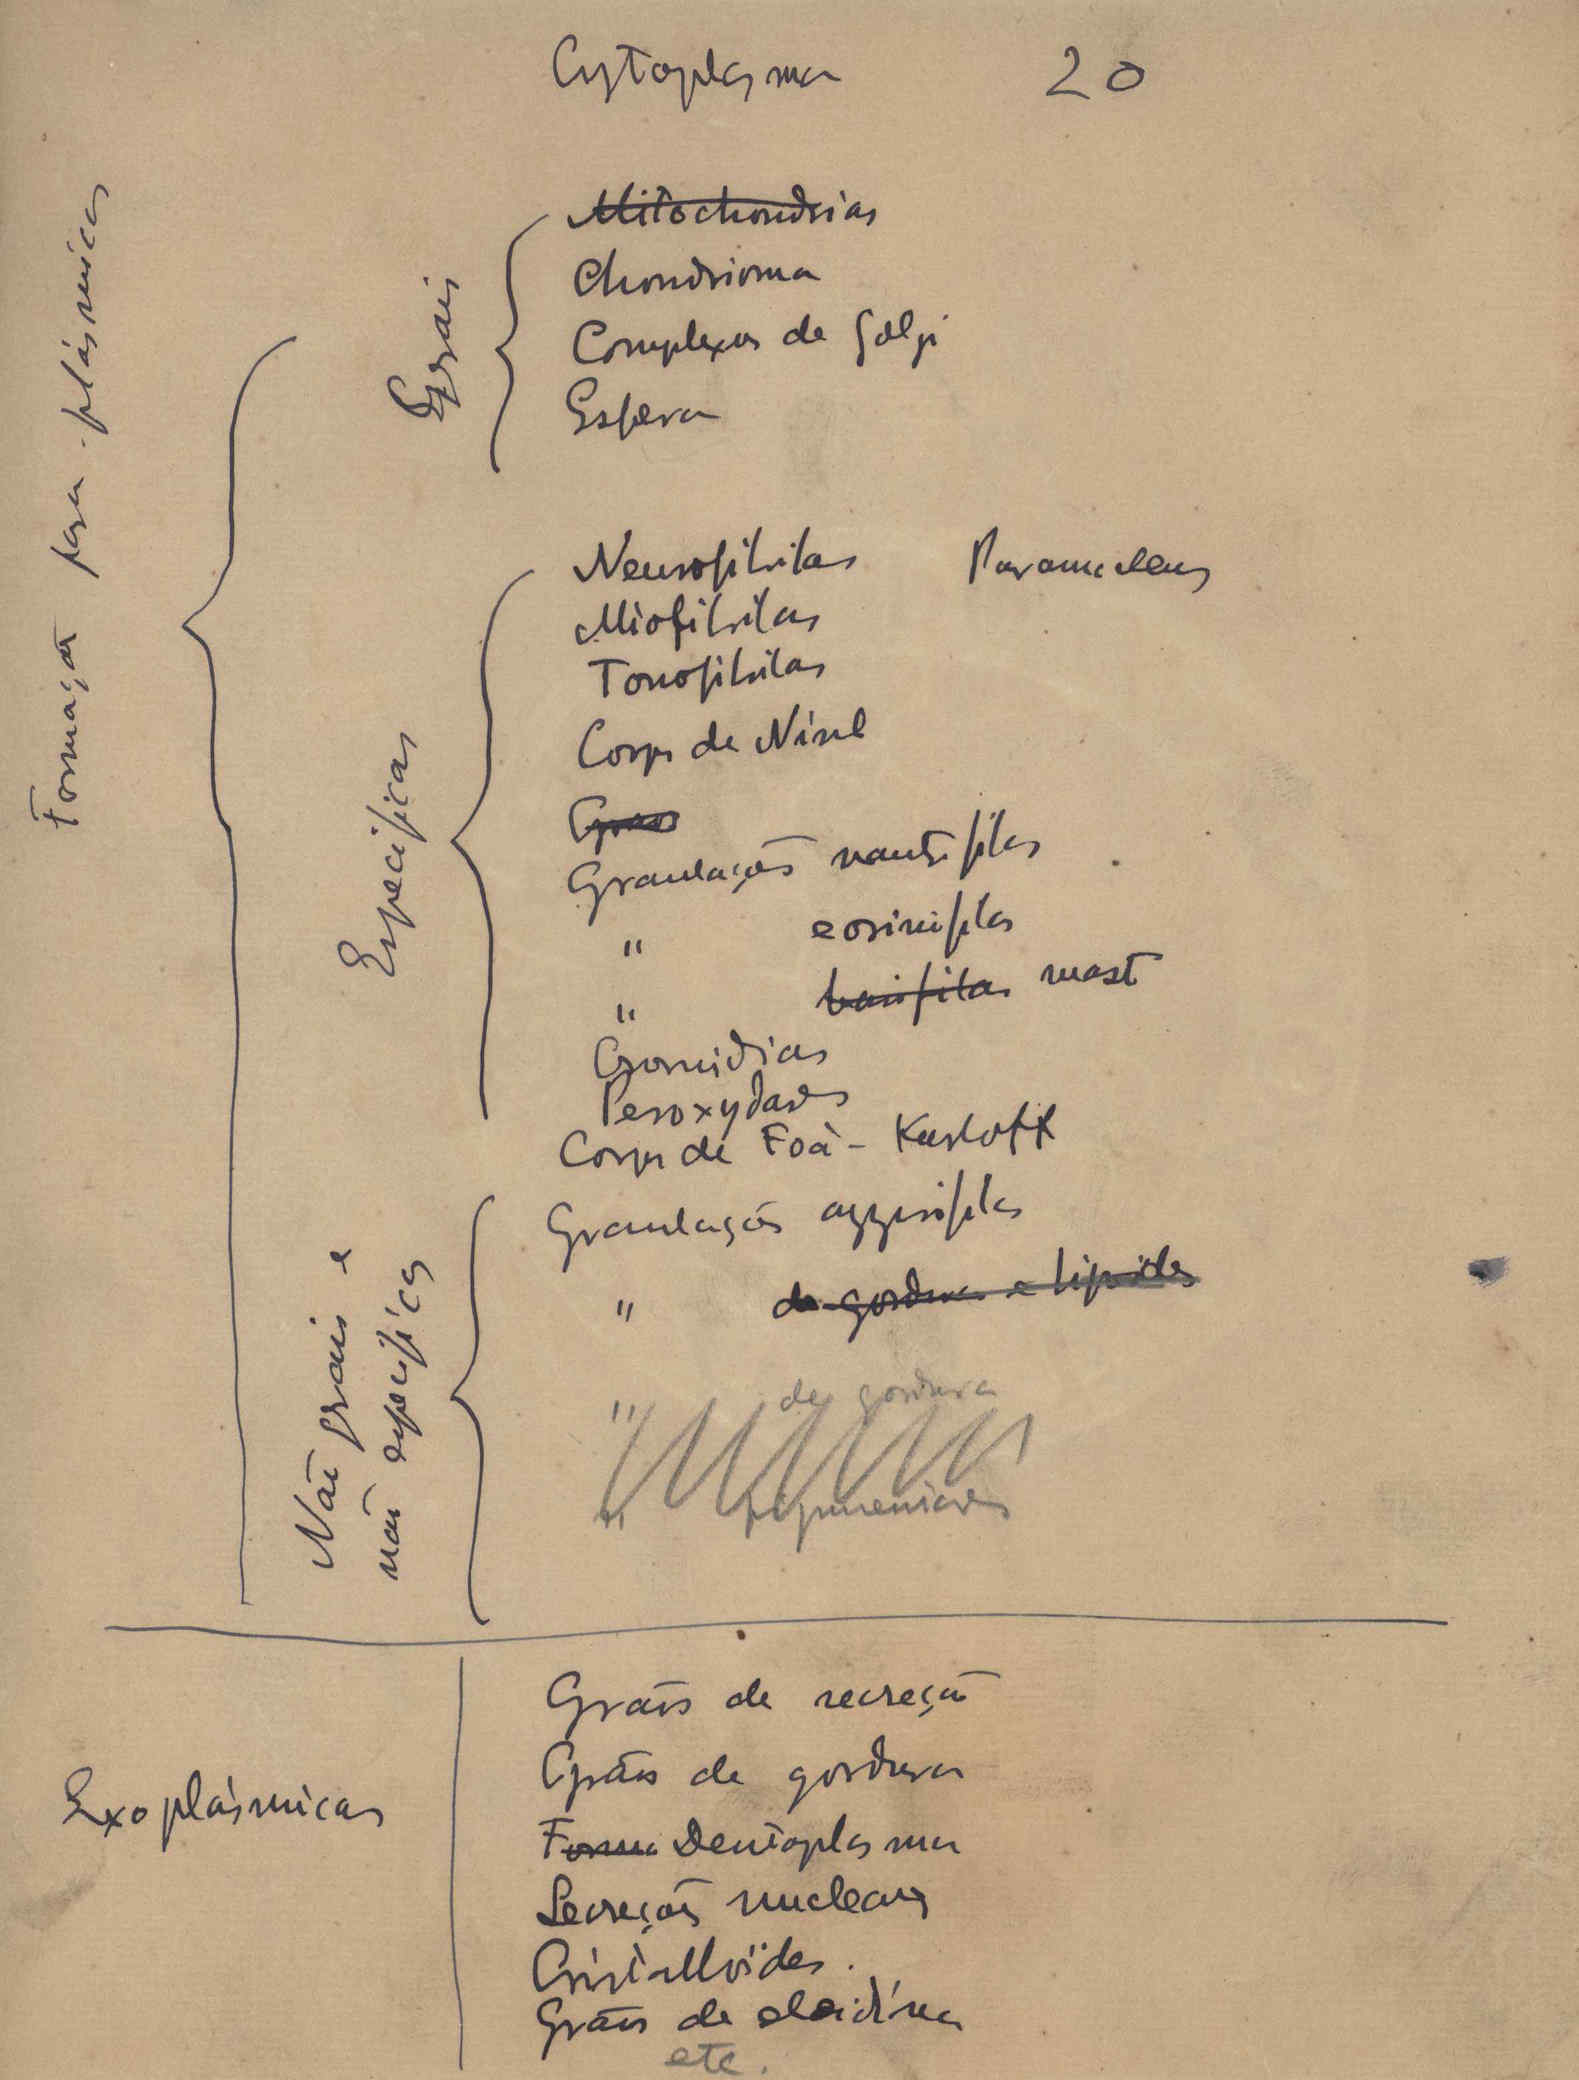 Cytoplasma 20
Formações para-plásmicas
Gerais
Mitochondrias
Chondrioma
Complexos de Golgi
Esfera
Especificas
Neurofibrilas Paranucleus
Miofibrilas
Tonofibrilas
Corps de Nissl
Granulações neutrofilas
" eosinofilas
" basofilas mast
Cromidias
Peroxydases
Corps de Foà - Kurloff
Não gerais e
não especificas
Granulações azurofilas
" de gordura e lipoides
" de gordura
" pigmentares
Exoplásmicas
Grãos de secreção
Grãos de gordura
Form Deutoplasma
Secreções nucleares
Cristalloïdes.
Grãos de eleidina
etc.